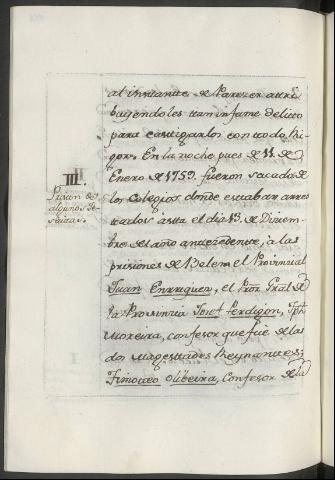 al instante de Parezer atri
buyendoles tan infame delito
para castigarlos con todo Ri
gor. En la noche pues de 11. de
Enero de 1759. fueron sacados
los Colegios donde estaban arres
tados asta el dia 13. de Diziem
bre del año antezedente, a las
prisiones de Belem el Provincial
Juan Enrriquez, el Pror. Gral de
la Provinzia Josef Perdigon, Jph
Moreira, confesor que fue de las
dos Magestades Reynantes;
Timoteo Olibeira, Confesor de la
III.
Prision de
algunos Je
suitas.